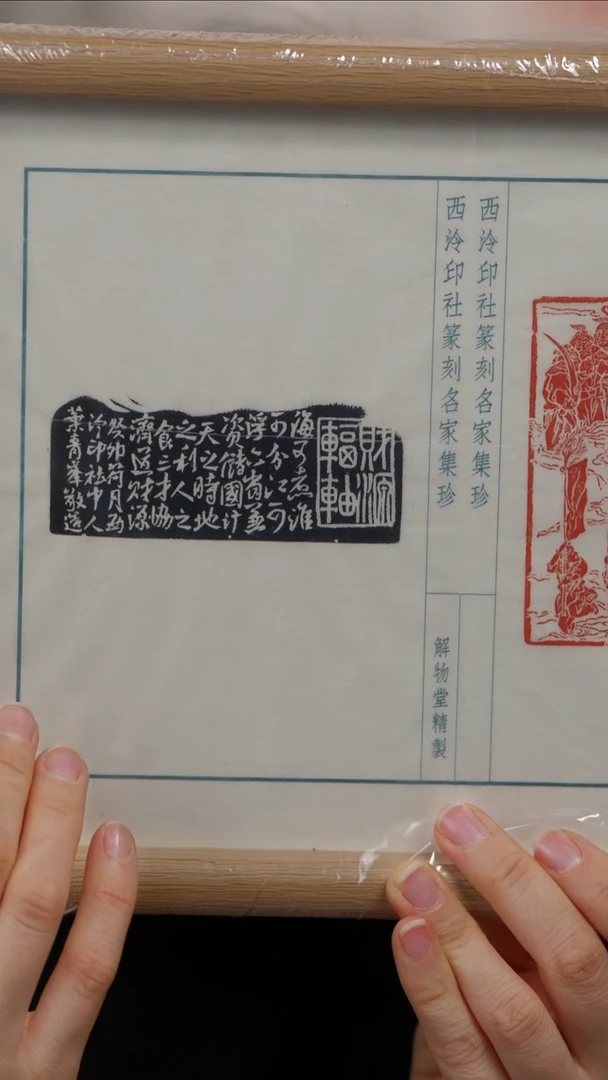 西泠印社篆刻名家集珍
西泠印社篆刻名家集珍
解物堂精製
財源
輻
海可煮淮
可分江可
浮商並
資儲國計
天之時地
之利人之
食三才協
濟道財源
癸卯荷月為
泠印社中人
葉青峯敬造